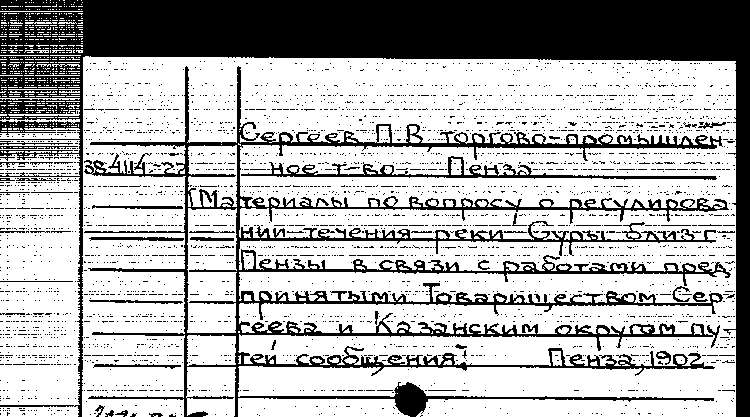 Сергеев, П.В., торгово-промышлен-
ное т-во. Пенза.
[Материалы по вопросу о регулирова-
нии течения реки Суры близ г.
Пензы в связи с работами пред-
принятыми Товариществом Сер-
геева и Казанским округом пу-
тей сообщения]. Пенза, 1902